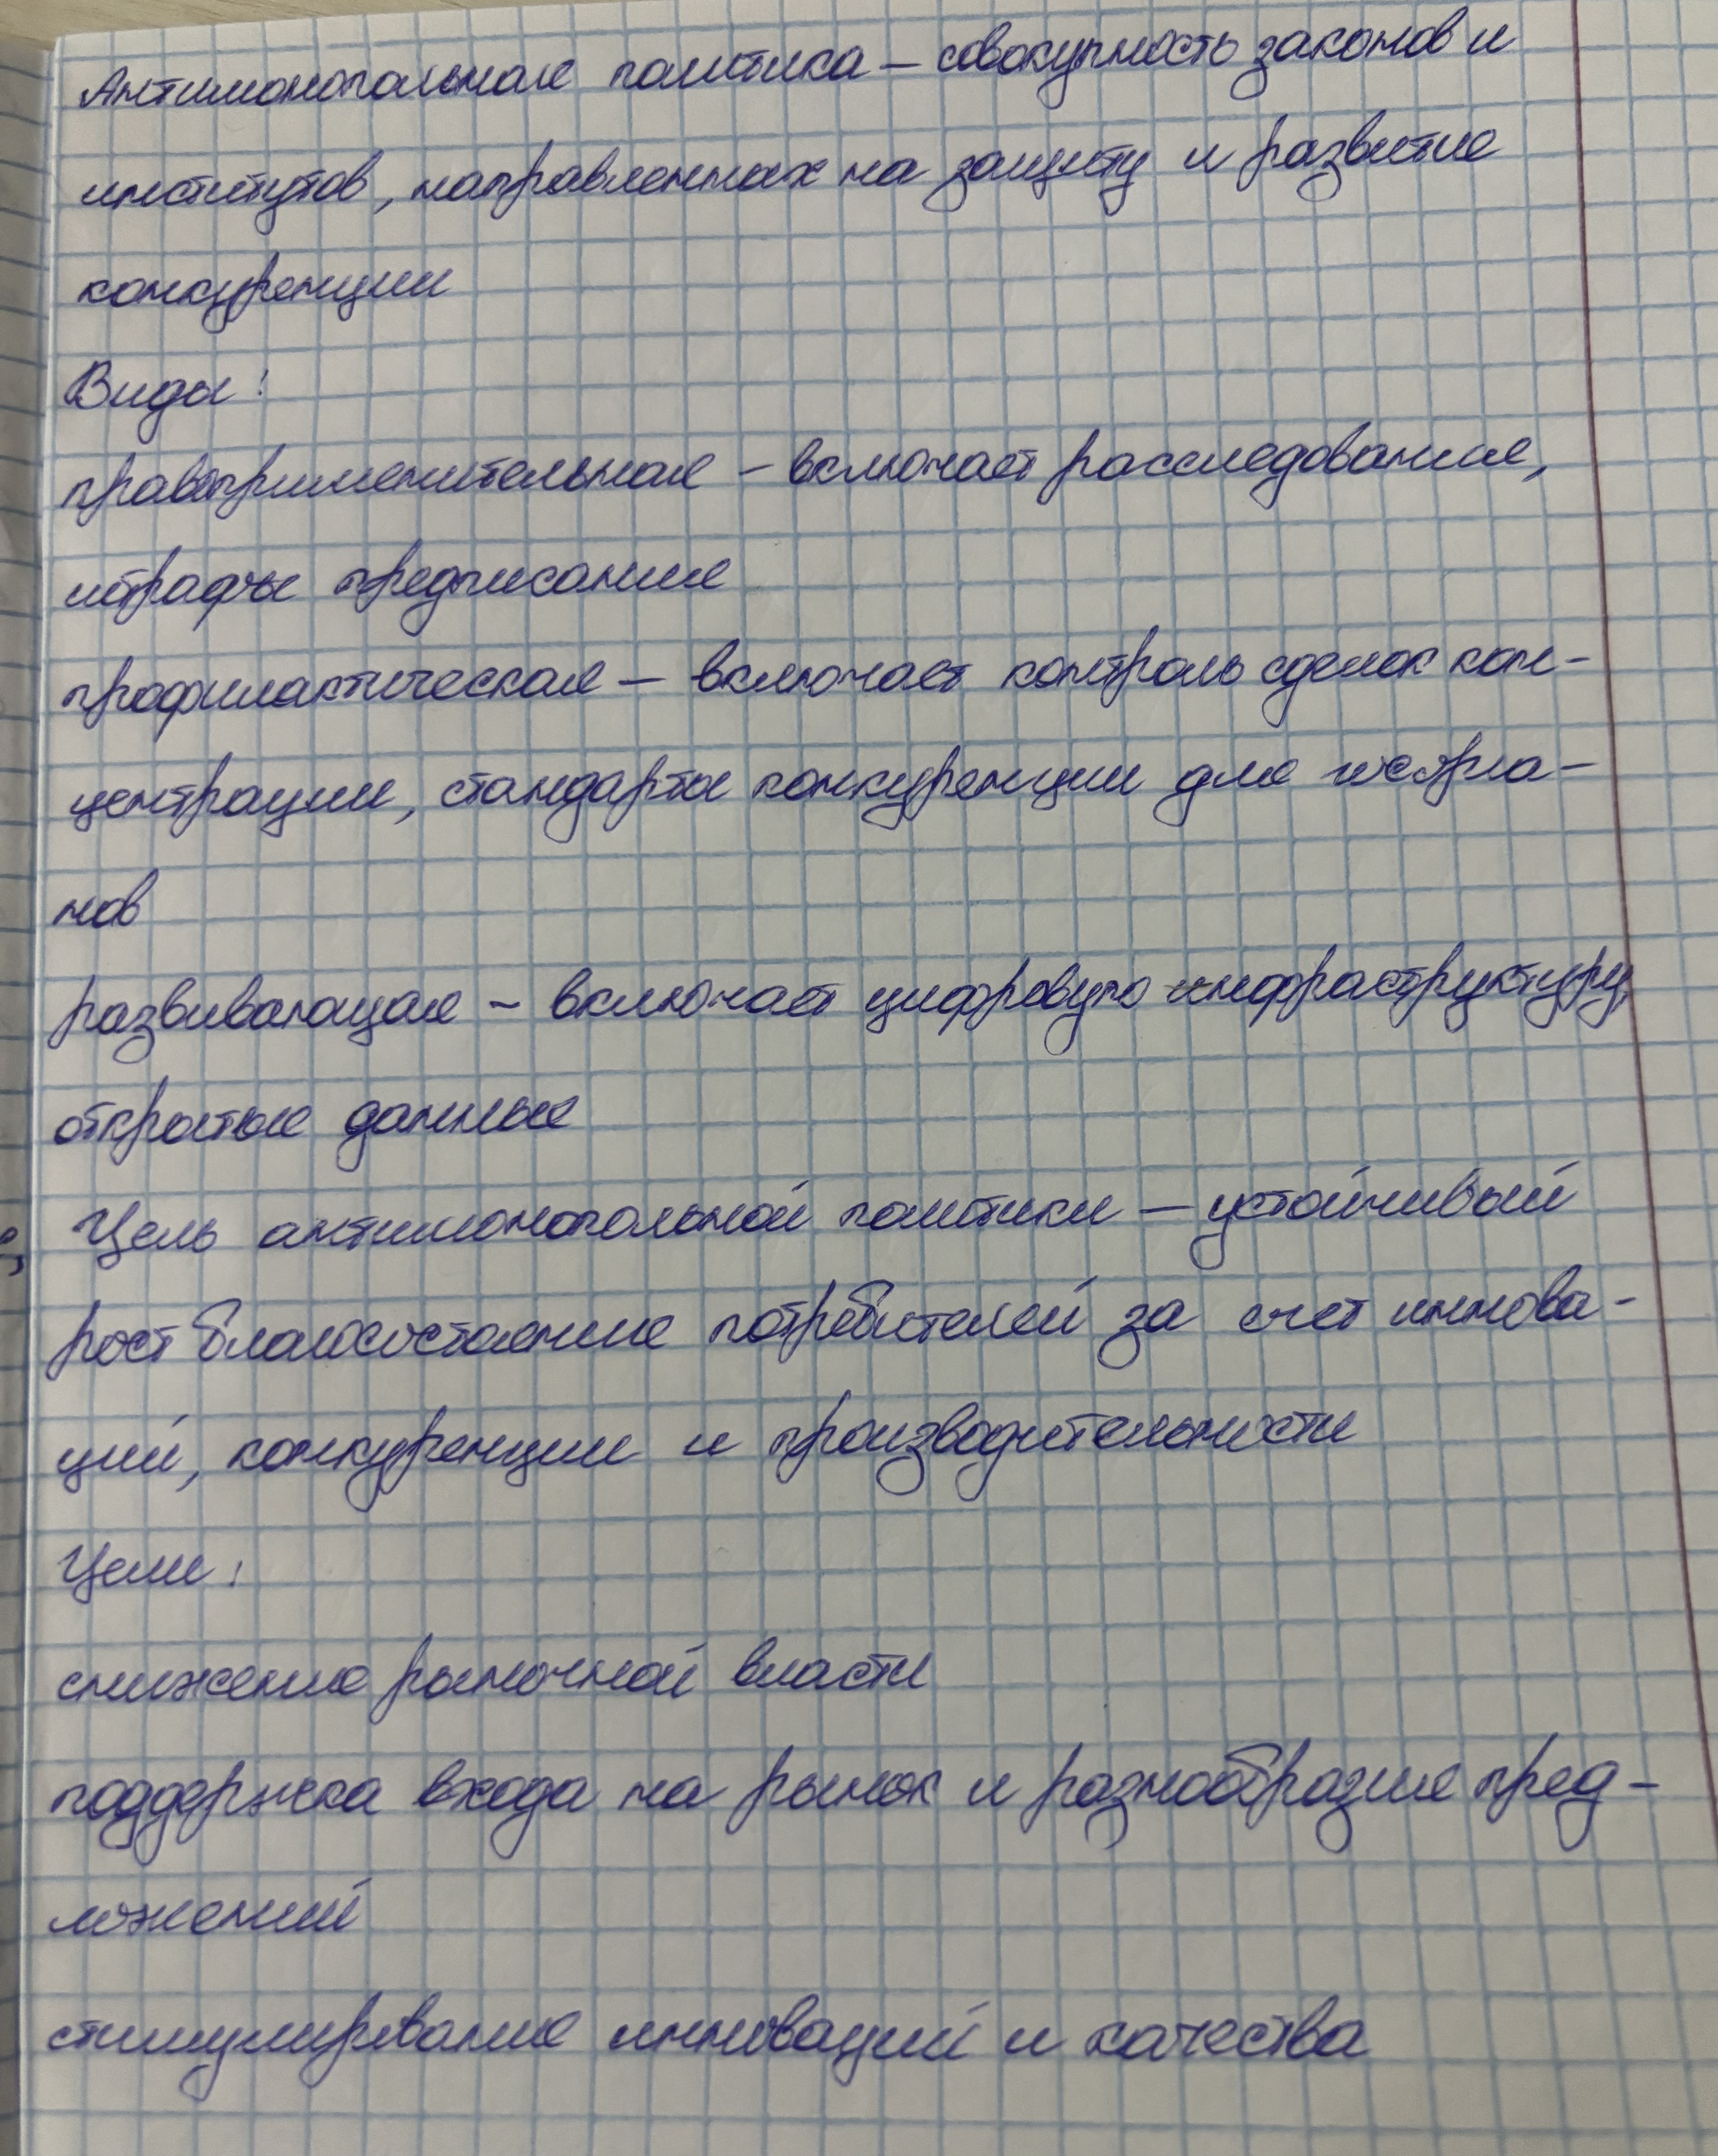 Антимонопольная политика – совокупность законов и
институтов, направленных на защиту и развитие
конкуренции
Виды:
правоприменительная – включает расследование,
штрафы предписание
профилактическая – включает контроль сделок кон-
центрации, стандарты конкуренции для
нов
развивающая – включает цифровую инфраструктуру,
открытые данные
Цель антимонопольной политики – устойчивый
рост благосостояние потребителей за счет иннова-
ций, конкуренции и производительности
Цели:
снижение рыночной власти
поддержка входа на рынок и разнообразие пред-
ложений
стимулирование инноваций и качества